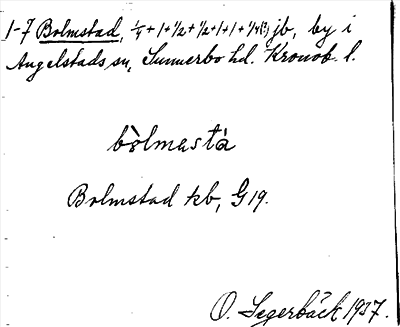 1-7 Bolmstad, 1/4 + 1 + 1/2 + 1/2 + 1 + 1 + 1/4(?) jb, by i
Angelstads sn, Sunnerbo hd. Kronob. l.
bòlmastà
Bolmstad kb, G 19.
O. Segerbäck 1937.